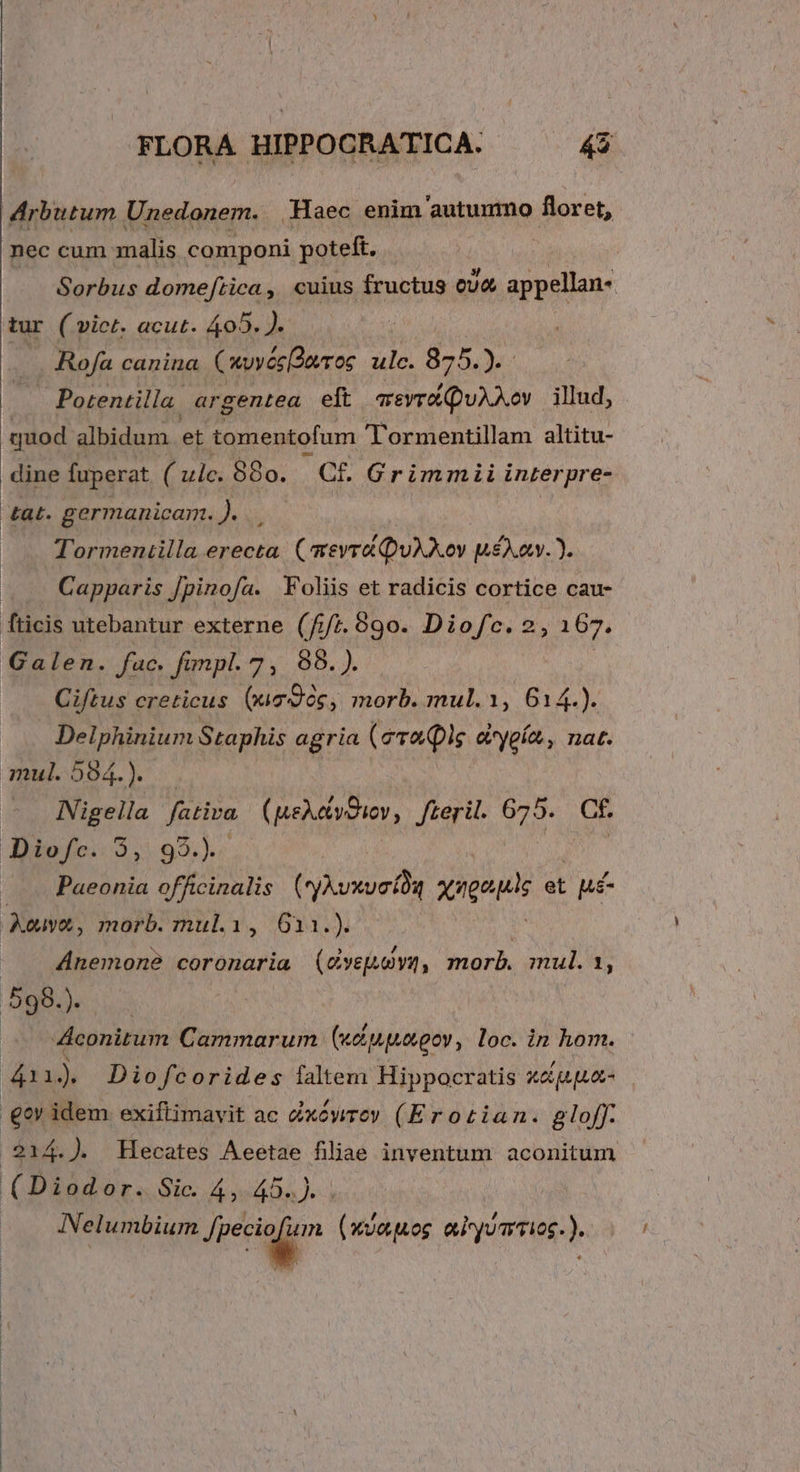 FLORA HIPPOCRATICA. 43
Arbutum Unedonem. Haec enim autumno floret,
nec cum malis componi poteſt.
Sorbus domeſtica, cuius fructus οὖα appellan-
tur (vict. acut. 405.).
Roſa canina (κυνόςβατος ulc. 875.).
Potentilla argentea eſt πεντάφυλλον illud,
quod albidum et tomentoſum Tormentillam altitu-
dine ſuperat (ulc. 880. Cf. Grimmii interpre-
tat. germanicam.).
Tormentilla erecta (πεντάφυλλον μέλαν.).
Capparis ſpinoſa. Foliis et radicis cortice cau-
ſticis utebantur externe (fiſt. 890. Dioſc. 2, 167.
Galen. fac. ſimpl. 7, 88.).
Ciſtus creticus (κισθὸς, morb. mul. 1, 614.).
Delphinium Staphis agria (σταφὶς ἀγρία, nat.
mul. 584.).
Nigella ſativa (μελάνθιον, ſteril. 675. Cf.
Dioſc. 3, 93.).
Paeonia officinalis (γλυκυσίδη χηραμὶς et μέ-
λαινα, morb. mul. 1, 611.).
Anemone coronaria (ἀνεμώνη, morb. mul. 1,
598.).
Aconitum Cammarum (κάμμαρον, loc. in hom.
411). Dioſcorides ſaltem Hippocratis κάμμα-
ρον idem exiſtimavit ac ἀκόνιτον (Erotian. gloſſ.
214.). Hecates Aeetae filiae inventum aconitum
(Diodor. Sic. 4, 45.).
Nelumbium ſpecioſum (κύαμος αἰγύπτιος.).